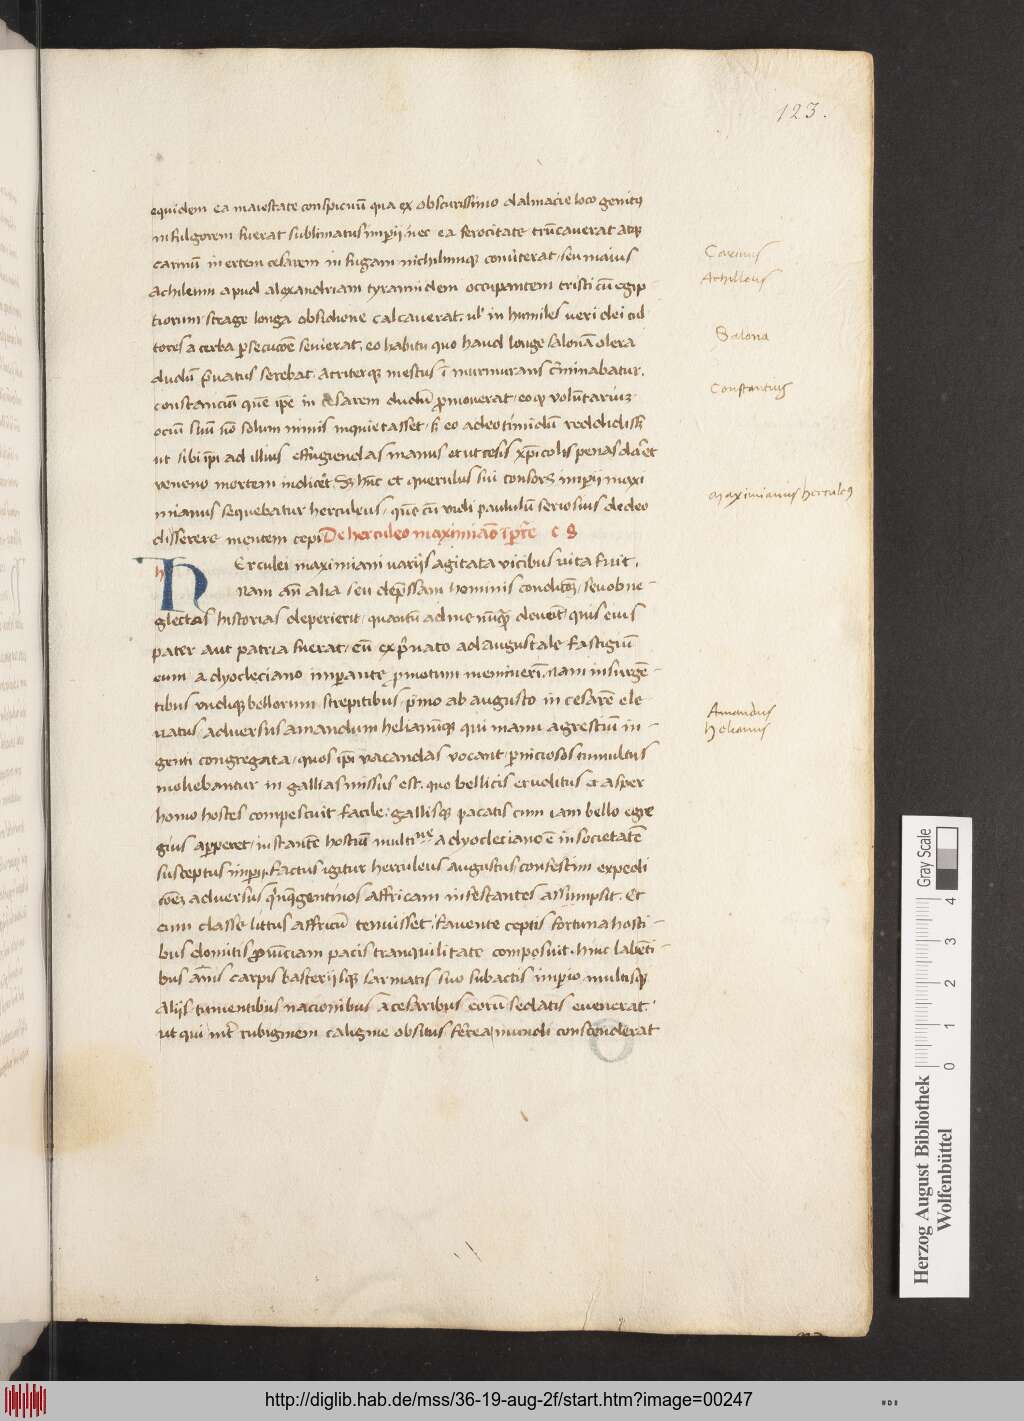 123.
equidem ea maiestate conspicuū qua ex obscurissimo dalmacie loco genitꝰ
in fulgorem fuerat sublimatus imperij nec ea ferocitate trūcauerat atqꝫ
carinū inertem cesarem in fugam nichilominꝰ conuerterat, seu maius
achileum apud alexandriam tyrannidem occupantem tristi cū egip
tiorum strage longa obsidione calcauerat. ul' in humiles ueri dei cul
tores acerba ꝑsecucōe seuierat, eo habitu quo haud longe salonā olera
dudū p̄uatus serebat. acriterqꝫ mestus ī murmurans c̄minabatur.
constancium quē ip̄e in cesarem dudū ꝓmouerat, eoqꝫ voluntariū
ociū suū nō solum minis inquietasset, sꝫ eo adeo timidū reddidissꝫ
ut sibi ip̄i ad illius effugiendas manus et ut cesis xp̄icolis penas daret
veneno mortem indiceret. Sꝫ hūc et querulus sui consors imperij maxi
mianus sequebatur herculeus, quē cū uidi paululū seriosius de deo
disserere mentem cepi De herculeo maximiāo īꝑāt̄e c 9
h
HErculei maximiani uarijs agitata vicibus uita fuit.
Nam an̄ alia seu depressam hominis conditōeꝫ, seu ob ne-
glectas historias deperierit, quantū ad me nūqꝫ deuēit, quis eius
pater aut patria fuerat, cū ex p̄uato ad augustale fastigiū
eum a dyocleciano imperante ꝓmotum meminerī. nam insurgē
tibus undiqꝫ bellorum strepitibus, p̄mo ab augusto in cesarē ele
uatus, aduersus amandum helianūqꝫ qui manu agrestiū in-
genti congregata, quos ip̄i vacandas vocant, ꝑniciosos tumultus
moliebantur in gallias missus est. quo bellicis eruditus et asper
homo hostes compescuit facile, gallisqꝫ pacatis cum iam bello egre
gius apperet, instante hostiū multine, a dyocleciano ē in societatē
susceptus imperij. Factus igitur herculeus augustus, confestim expedi
cōeꝫ aduersus q̄nqꝫgentinos affricam infestantes assumpsit. Et
cum classe littus affricū tenuisset, fauente ceptis fortuna hosti-
bus domitis ꝓuīciam pacis tranquilitate composuit. hinc labēti
bus ān̄is carpis basterijsqꝫ sarmatis suo subactis imperio multisqꝫ
alijs tumentibus nacionibus a cesaribus eorū sedatis euenerat.
ut qui int̄ rubiginem caligine obsitus ferrea, mundi conscenderat
Carinus
Achilleus
Salona
Constantius
Maximianus herculeꝰ
Amandus
helianus
Herzog August Bibliothek
Wolfenbüttel
Gray Scale
0 1 2 3 4
http://diglib.hab.de/mss/36-19-aug-2f/start.htm?image=00247